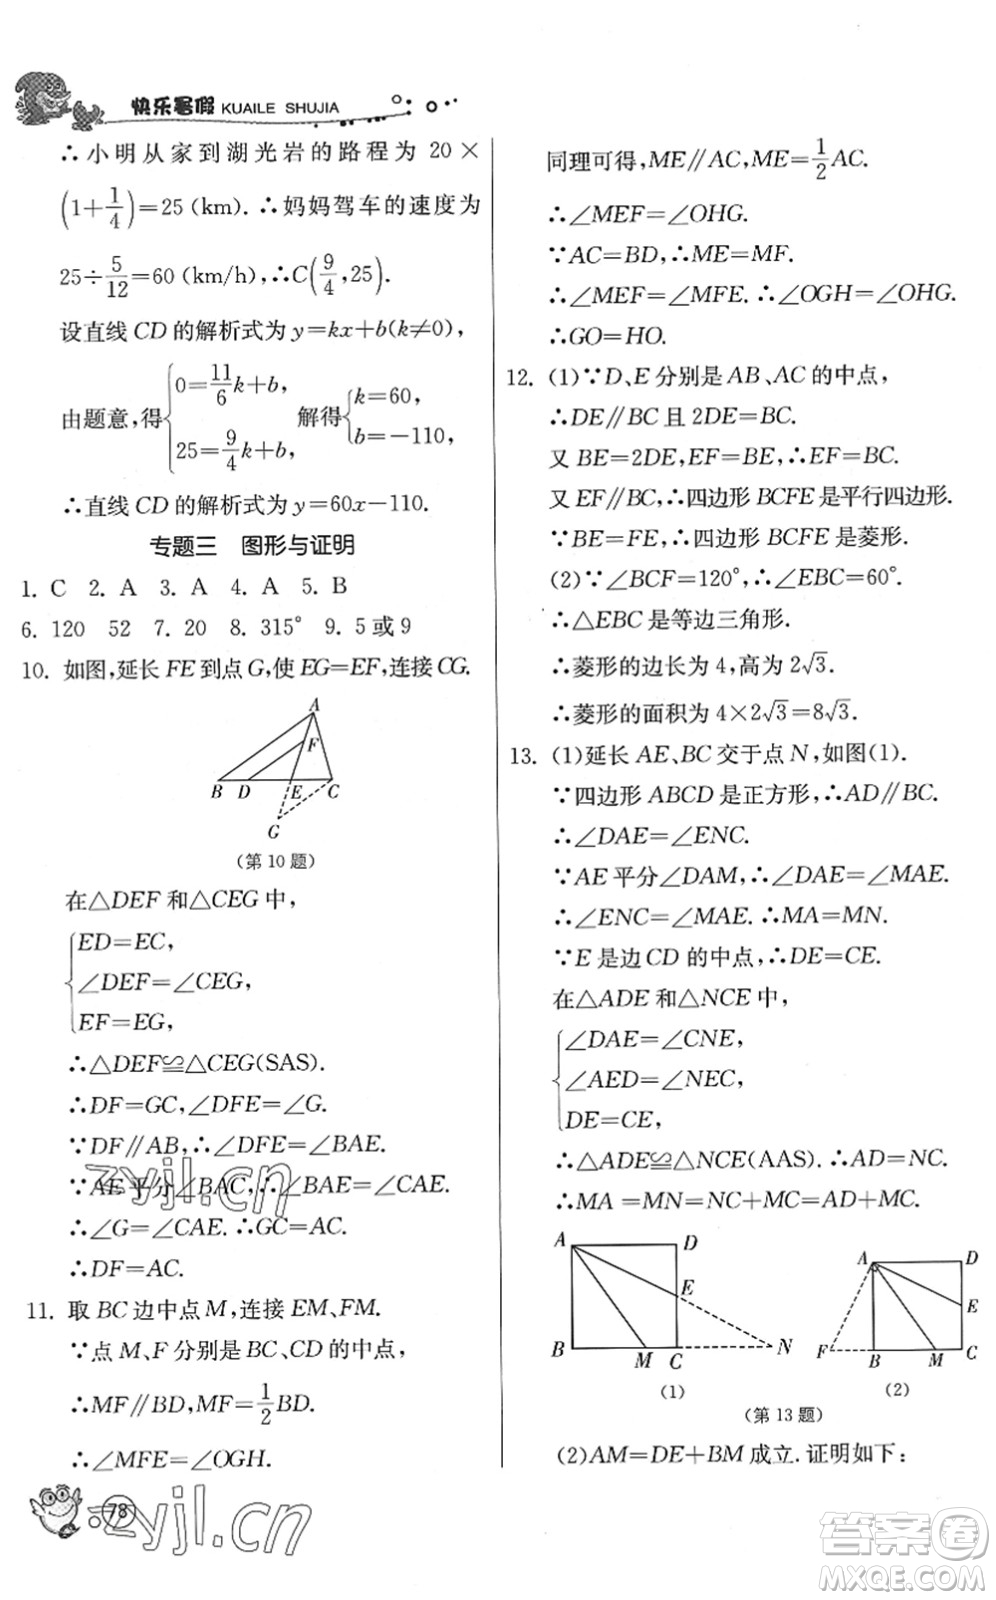 快乐暑假 KUAILE SHUJIA
∴小明从家到湖光岩的路程为 20×
(1+1/4)=25 (km). ∴妈妈驾车的速度为
25÷5/12=60 (km/h),∴C(9/4,25).
设直线 CD 的解析式为 y=kx+b(k≠0),
由题意,得{0=11/6k+b, 25=9/4k+b, 解得{k=60, b=-110,
∴直线 CD 的解析式为 y=60x-110.
专题三 图形与证明
1. C 2. A 3. A 4. A 5. B
6. 120 52 7. 20 8. 315° 9. 5 或 9
10. 如图,延长 FE 到点 G,使 EG=EF,连接 CG.
A
F
B D E C
G
(第 10 题)
在△DEF 和△CEG 中,
{ED=EC,
∠DEF=∠CEG,
EF=EG,
∴△DEF≌△CEG(SAS).
∴DF=GC,∠DFE=∠G.
∵DF∥AB,∴∠DFE=∠BAE.
∵AE 平分∠BAC,∴∠BAE=∠CAE.
∴∠G=∠CAE. ∴GC=AC.
∴DF=AC.
11. 取 BC 边中点 M,连接 EM、FM.
∵点 M、F 分别是 BC、CD 的中点,
∴MF∥BD,MF=1/2BD.
∴∠MFE=∠OGH.
78
同理可得,ME∥AC,ME=1/2AC.
∴∠MEF=∠OHG.
∵AC=BD,∴ME=MF.
∴∠MEF=∠MFE. ∴∠OGH=∠OHG.
∴GO=HO.
12. (1)∵D、E 分别是 AB、AC 的中点,
∴DE∥BC 且 2DE=BC.
又 BE=2DE,EF=BE,∴EF=BC.
又 EF∥BC,∴四边形 BCFE 是平行四边形.
∵BE=FE,∴四边形 BCFE 是菱形.
(2)∵∠BCF=120°,∴∠EBC=60°.
∴△EBC 是等边三角形.
∴菱形的边长为 4,高为 2√3.
∴菱形的面积为 4×2√3=8√3.
13. (1)延长 AE、BC 交于点 N,如图(1).
∵四边形 ABCD 是正方形,∴AD∥BC.
∴∠DAE=∠ENC.
∵AE 平分∠DAM,∴∠DAE=∠MAE.
∴∠ENC=∠MAE. ∴MA=MN.
∵E 是边 CD 的中点,∴DE=CE.
在△ADE 和△NCE 中,
{∠DAE=∠CNE,
∠AED=∠NEC,
DE=CE,
∴△ADE≌△NCE(AAS). ∴AD=NC.
∴MA=MN=NC+MC=AD+MC.
A D
E
B M C N
(1)
A D
E
F B M C
(2)
(第 13 题)
(2)AM=DE+BM 成立. 证明如下:
zyjl.cn
zyjl.cn
答案卷
MXQE.COM